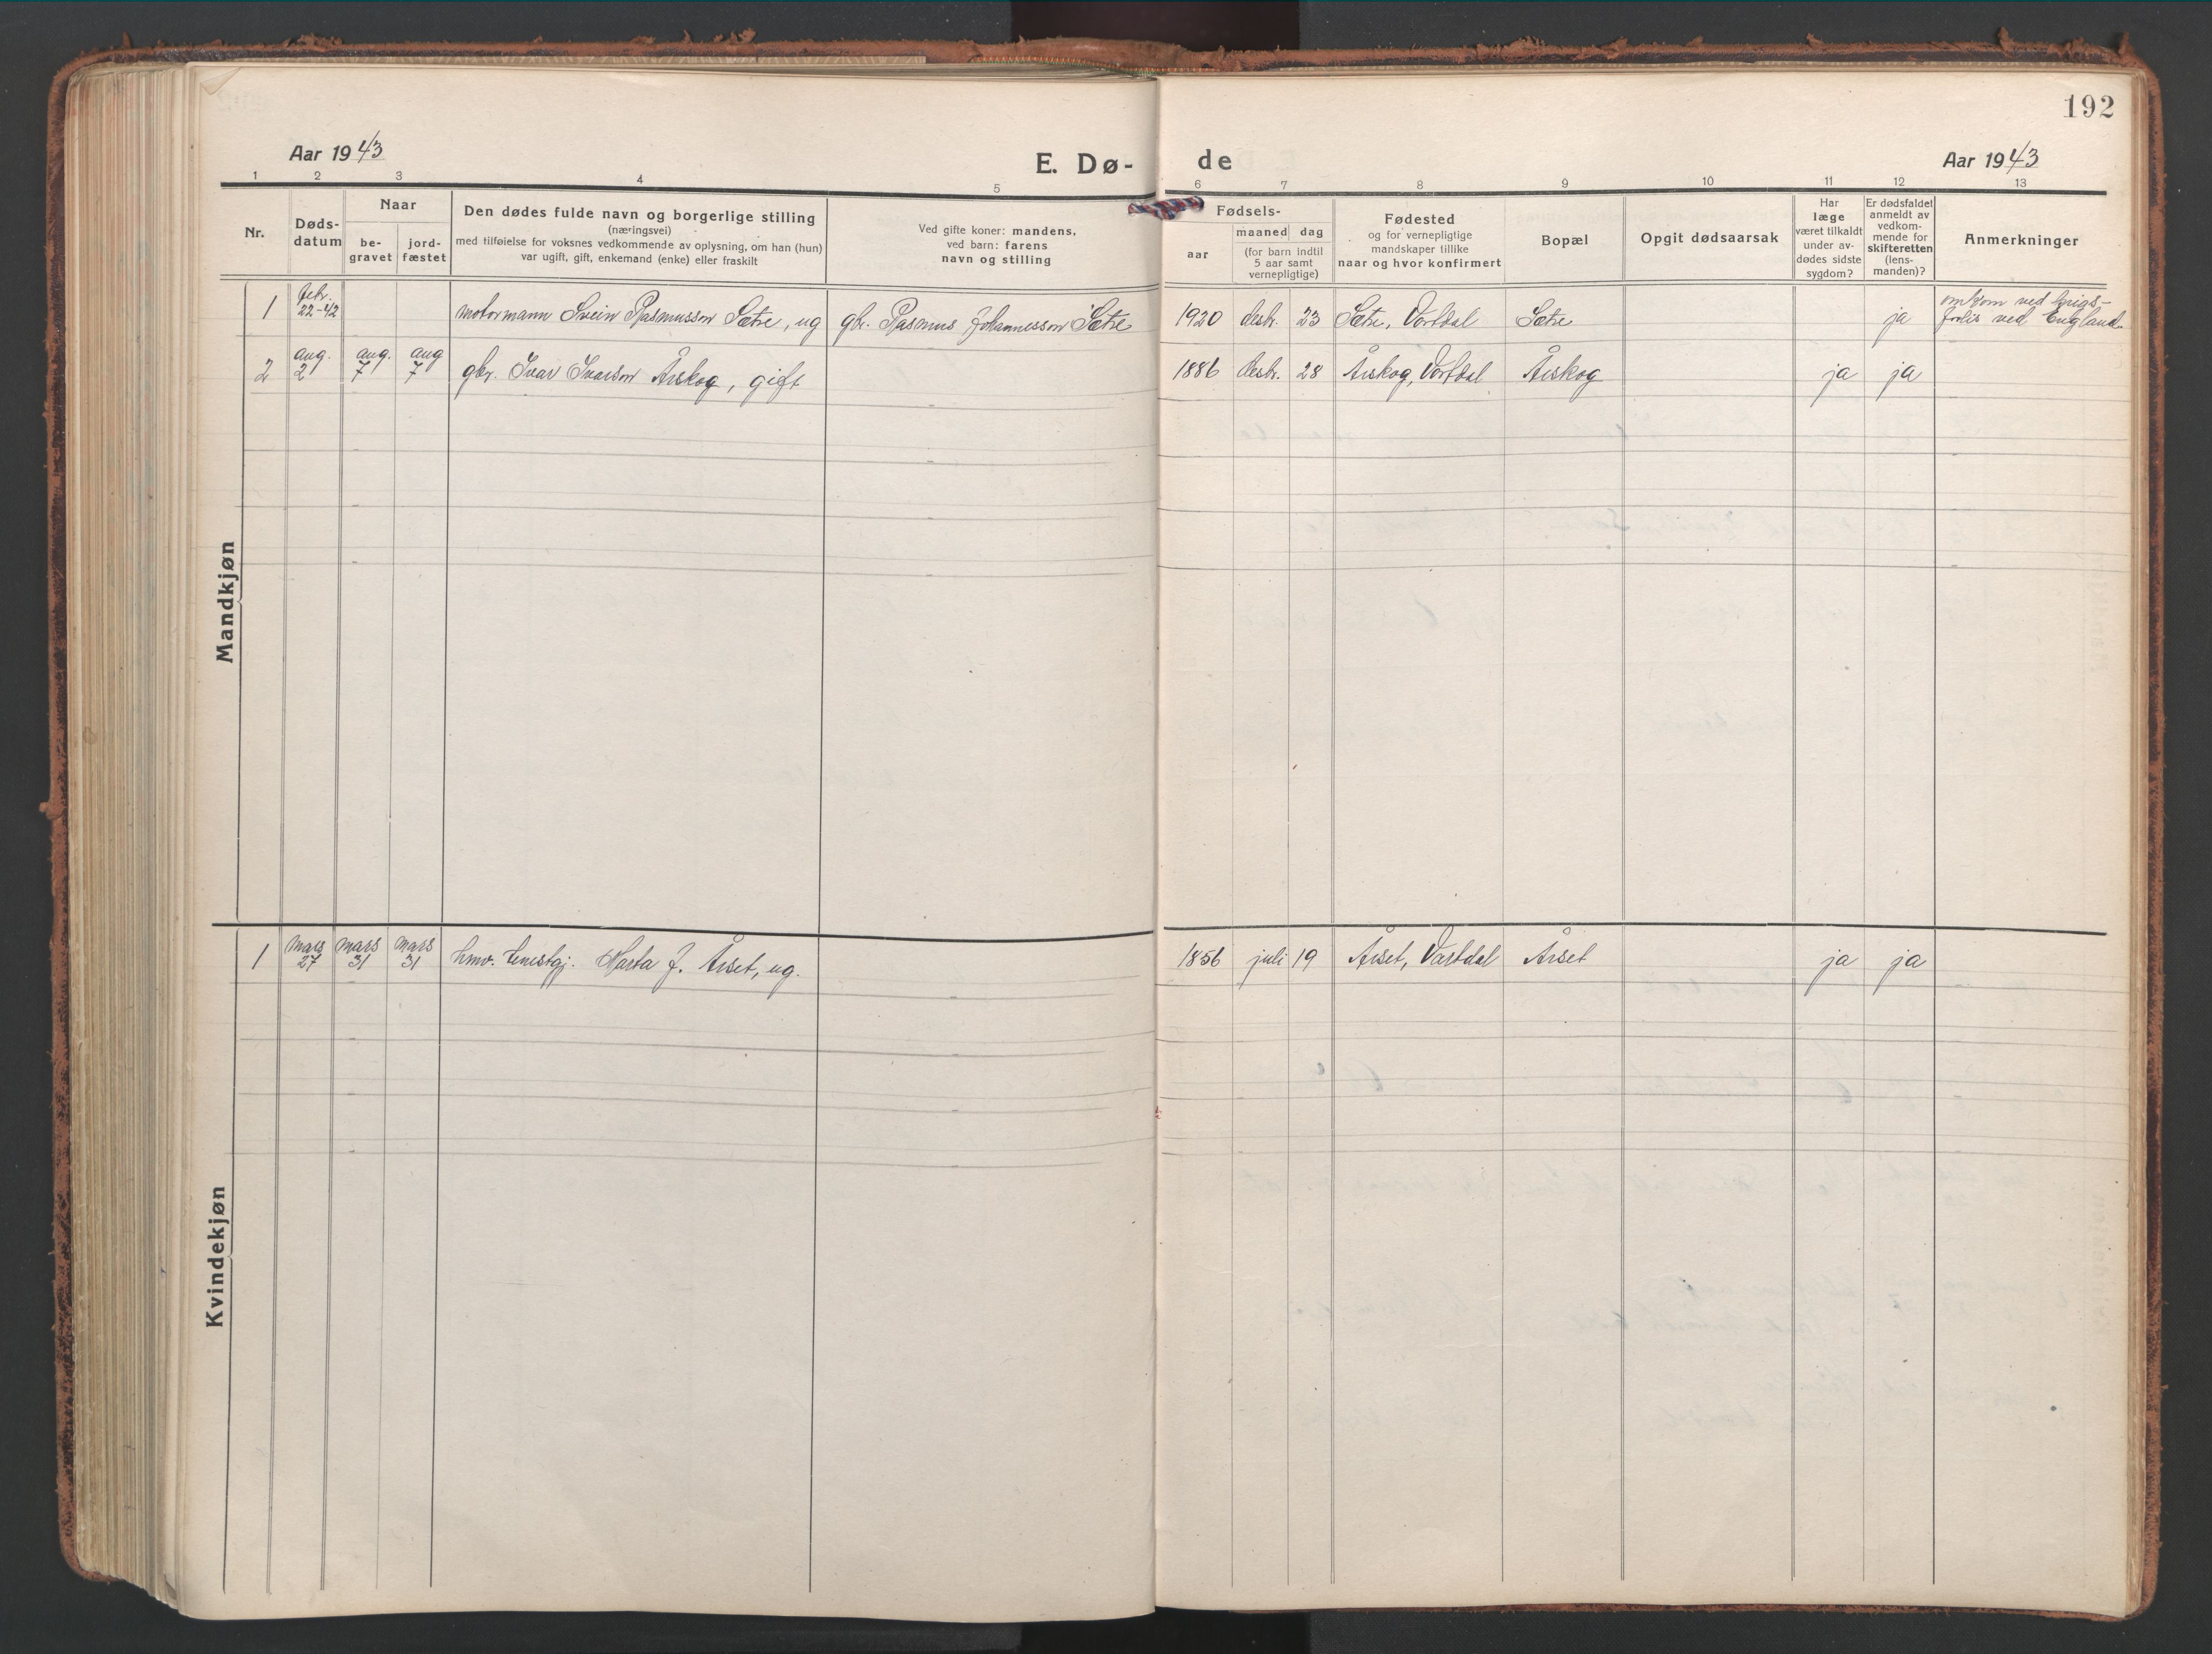 192
Aar 1943
E. Dø-
de
Aar 1943
1 2 3 4 5 6 7 8 9 10 11 12 13
Nr.
Døds-
datum
Naar
be-
gravet
jord-
fæstet
Den dødes fulde navn og borgerlige stilling
(næringsvei)
med tilføielse for voksnes vedkommende av oplysning, om han (hun)
var ugift, gift, enkemand (enke) eller fraskilt
Ved gifte koner: mandens,
ved barn: farens
navn og stilling
Fødsels-
aar
maaned dag
(for barn indtil
5 aar samt
vernepligtige)
Fødested
og for vernepligtige
mandskaper tillike
naar og hvor konfirmert
Bopæl
Opgit dødsaarsak
Har
læge
været tilkaldt
under av-
dødes sidste
sygdom?
Er dødsfaldet
anmeldt av
vedkom-
mende for
skifteretten
(lens-
manden)?
Anmerkninger
Mandkjøn
1 febr. 22-42 motormann Svein Rasmusson Sætre, ug gbr. Rasmus Johannesson Sætre 1920 desbr. 23 Sætre, Vartdal Sætre ja omkom ved krigs-
forlis ved England.
2 aug. 2 aug. 7 aug 7 gbr. Ivar Ivarson Årskog, gift 1886 desbr. 28 Årskog, Vartdal Årskog ja ja
Kvindekjøn
1 mars 27 mars 31 mars 31 Marta J. Årset, ug. 1856 juli 19 Årset, Vartdal Årset ja ja